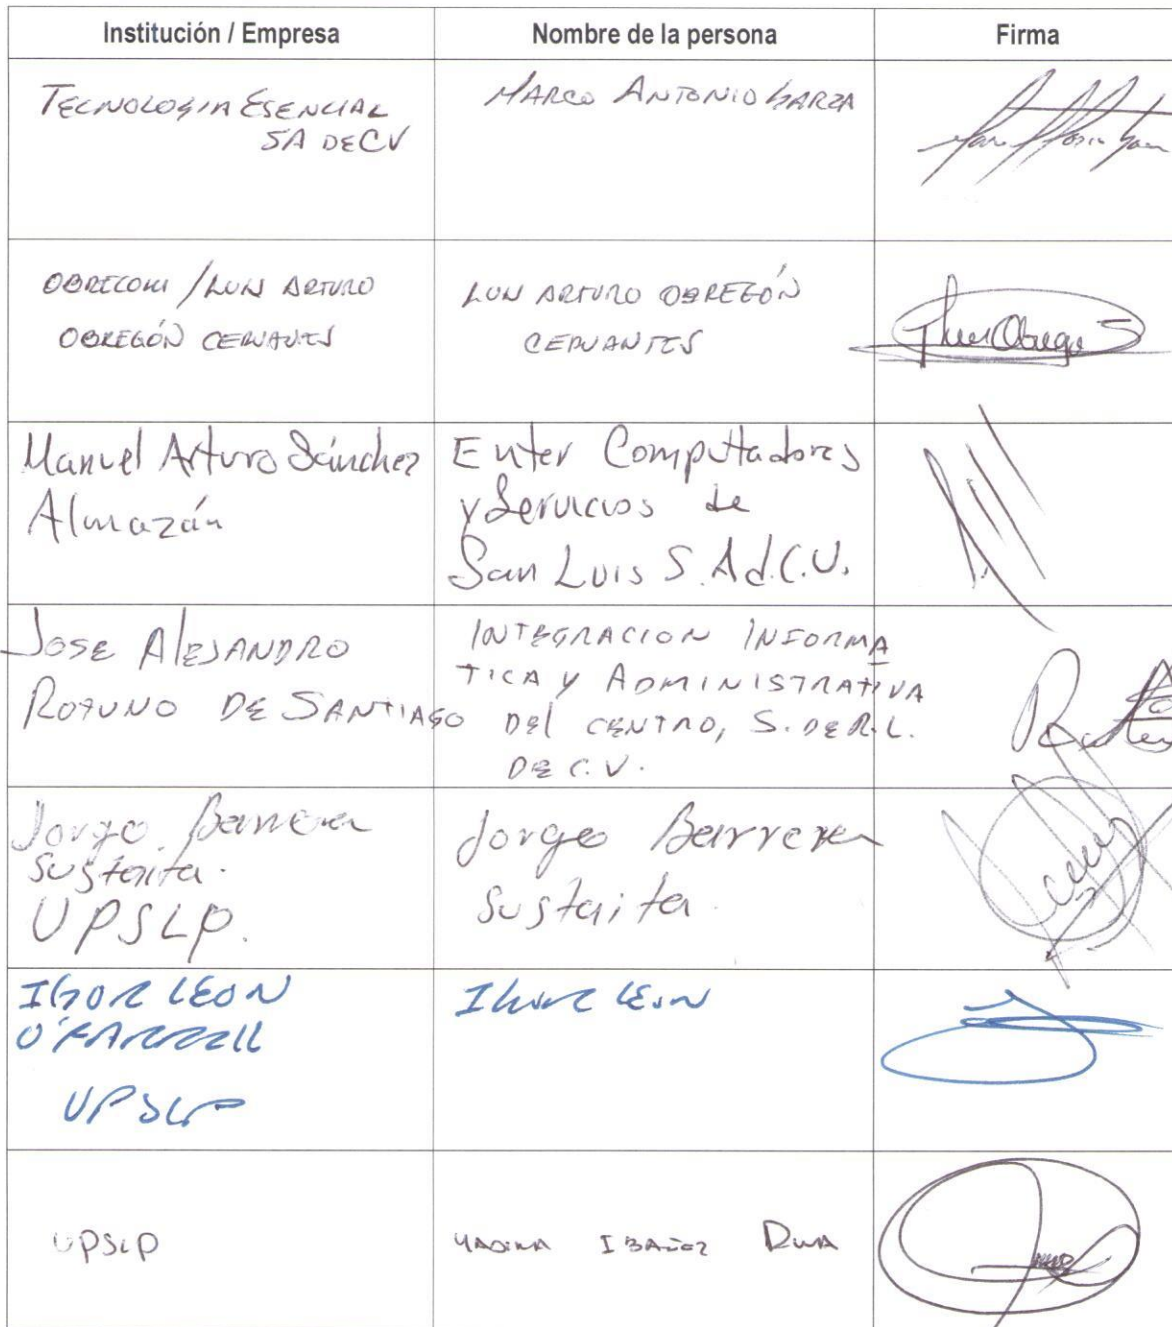 Institución / Empresa
Nombre de la persona
Firma
TECNOLOGIA ESENCIAL
SA DE CV
MARCO ANTONIO GARZA
OBREGÓN CERVANTES
LUIS ARTURO OBREGÓN
CERVANTES
Manuel Arturo Sánchez
Almazán
Enter Computadores
y Servicios de
San Luis S.A d.C.V.
JOSE ALEJANDRO
ROTUNO DE SANTIAGO
INTEGRACION INFORMA
TICA Y ADMINISTRATIVA
DEL CENTRO, S. DE R.L.
DE C.V.
Jorge Barrera
Sustaita.
UPSLP.
Jorge Barrera
Sustaita.
IGOR LEON
O'FARRILL
UPSLP
IGOR LEON
UPSLP
IBAÑEZ